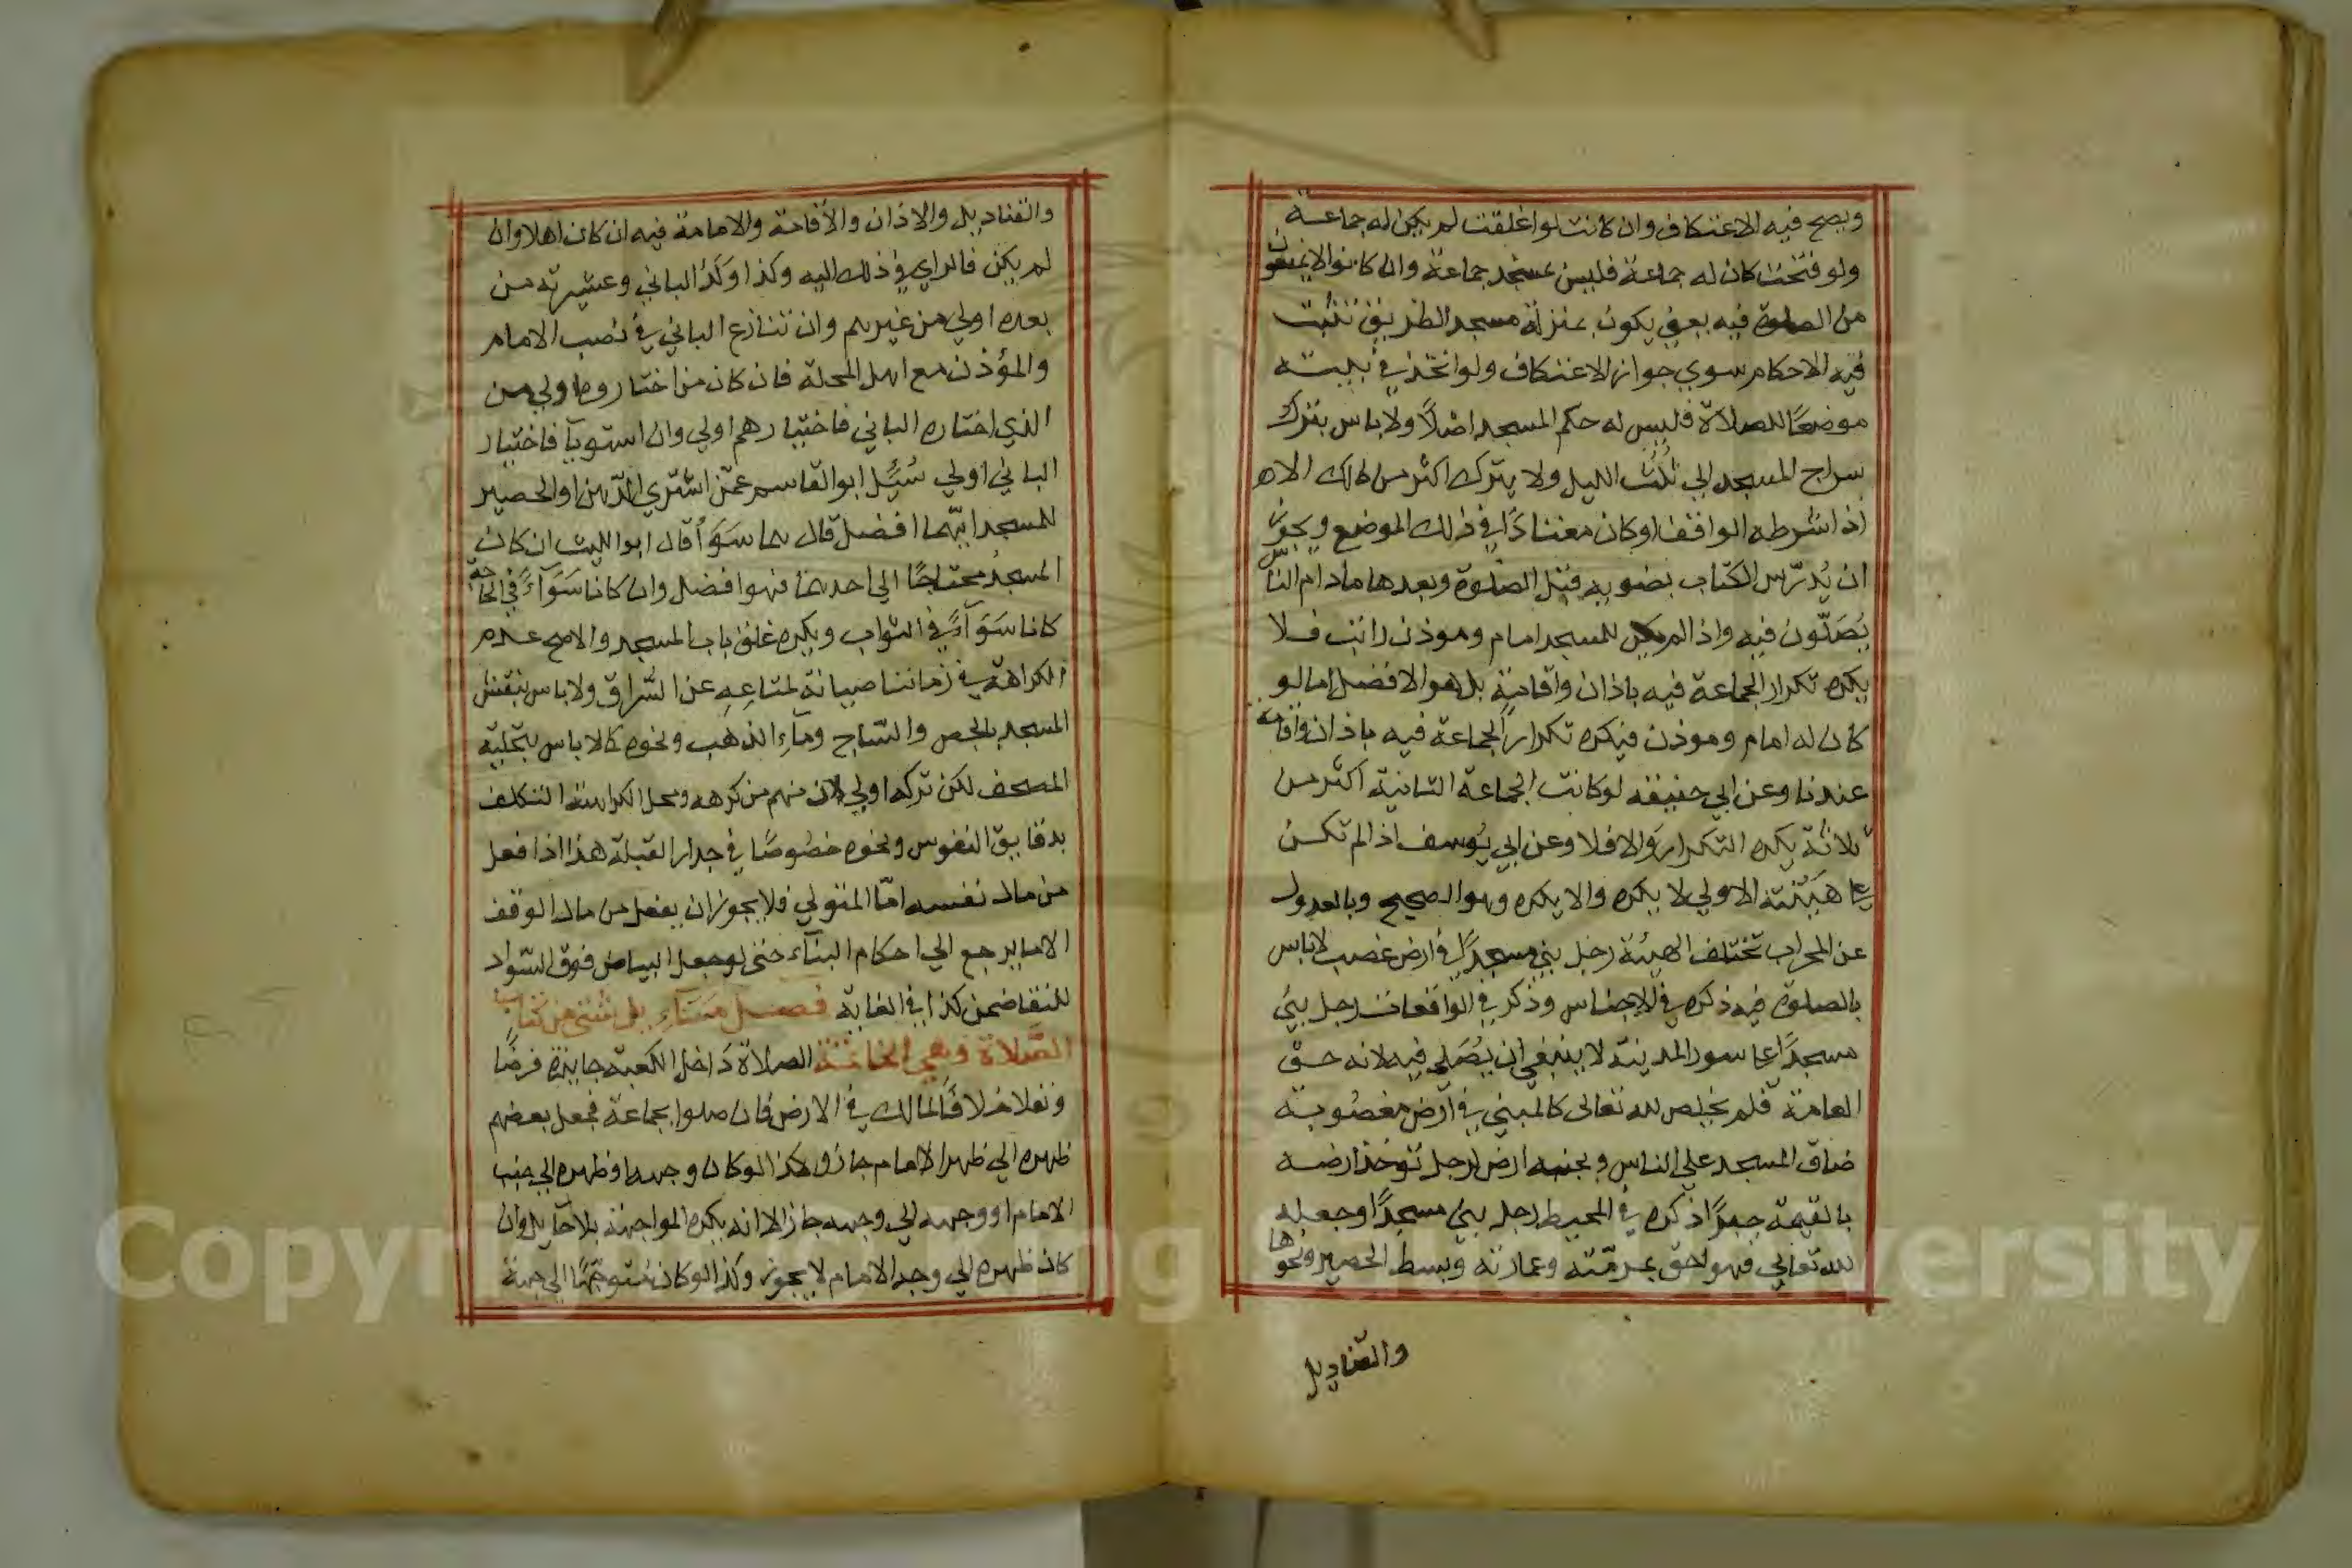 ويصح فيه الاعتكاف وان كانت لو اغلقت لم يكن له جماعة
ولو فتحت كان له جماعة فليس بمسجد جماعة وان كانوا لا يمنعون
من الصلوة فيه يعني يكون بمنزلة مسجد الطريق تثبت
فيه الاحكام سوي جواز الاعتكاف ولو اتخذ في بيته
موضعًا للصلاة فليس له حكم المسجد اصلاً ولا باس بترك
سراج المسجد الي ثلُث الليل ولا يترك اكثر من ذلك الا
اذا شرطه الواقف او كان معتادًا في ذلك الموضع ويجوز
ان يُدرّس الكتاب بضويه قبل الصلوة وبعدها مادام الناس
يُصَلّون فيه واذا لم يكن للمسجد امام وموذن راتب فلا
يكره تكرار الجماعة فيه باذان واقامة بل هو الافضل اما لو
كان له امام وموذن فيكره تكرار الجماعة فيه باذان واقامة
عندنا وعن ابي حنيفه لو كانت الجماعة الثانية اكثر من
ثلاثة يكره التكرار والا فلا وعن ابي يُوسف اذا لم تكن
علي هيئته الاولي لا يكره والا يكره وهو الصحيح وبالعدول
عن المحراب تختلف الهيئة رجل بني مسجدًا في ارض غصب لاباس
بالصلوة فيه ذكره في الاجناس وذكر في الواقعات رجل بني
مسجدًا علي سور المدينة لا ينبغي ان يُصَلي فيه لانه حق
العامة فلم يخلص لله تعالى كالمبني في ارض مغصُوبة
ضاق المسجد علي الناس وبجنبه ارض لرجل تؤخذ ارضه
بالقيمة جبرًا ذكره في المحيط رجل بني مسجدًا وجعله
لله تعالي فهو احق بمرمّته وعمارته وبسط الحصير ونحوها
والقناديل
والقناديل والاذان والاقامة والامامة فيه ان كان اهلا وان
لم يكن فالراي في ذلك اليه وكذا ولد الباني وعشيرته من
بعده اولي من غيرهم وان تنازع الباني في نصب الامام
والمؤذن مع اهل المحلة فان كان من اختاروه اولي من
الذي اختاره الباني فاختيارهم اولي وان استويا فاختيار
الباني اولي سُئِل ابو القاسم عمّن اشتري الدّهن او الحصير
للمسجد ايّهما افضل قال هما سَوَآء قال ابو الليث ان كان
المسجدُ محتاجًا الي احدهما فهو افضل وان كانا سَوَآءً في الحاجة
كانا سَوَآءً في الثواب ويكره غلق باب المسجد والاصح عدم
الكراهة في زماننا صيانة لمتاعِهِ عن السّراق ولا باس بنقش
المسجد بالجص والسّاج ومآء الذهَب ونحوه كالا باس بتحلية
المصحف لكن تركه اولي لان منهم من كرهه ومحل الكراهة التكلف
بدقايق النقوس ونحوه خصُوصًا في جدار القبلة هذا اذا فعل
من مال نفسه امّا المتولي فلا يجوز ان يفعل من مال الوقف
الا ما يرجع الي احكام البنآء حتى لو جعل البياض فوق السّواد
للنقا ضمن كذا في الغاية فصل مسَآيل شتي من كتاب
الصَّلاة وهي الخاتمة الصلاة دَاخل الكعبة جايزة فرضًا
ونفلا خلافًا لمالك في الارض فان صلوا بجماعة فجعل بعضهم
ظهره الي ظهر الامام جاز وكذا لو كان وجهه او ظهره الي جنب
الامام او وجهه الي وجهه جاز الا انه يكره المواجهة بلا حايل وان
كان ظهره الي وجه الامام لا يجوز وكذا لو كان مُتوجهًا الي جهة